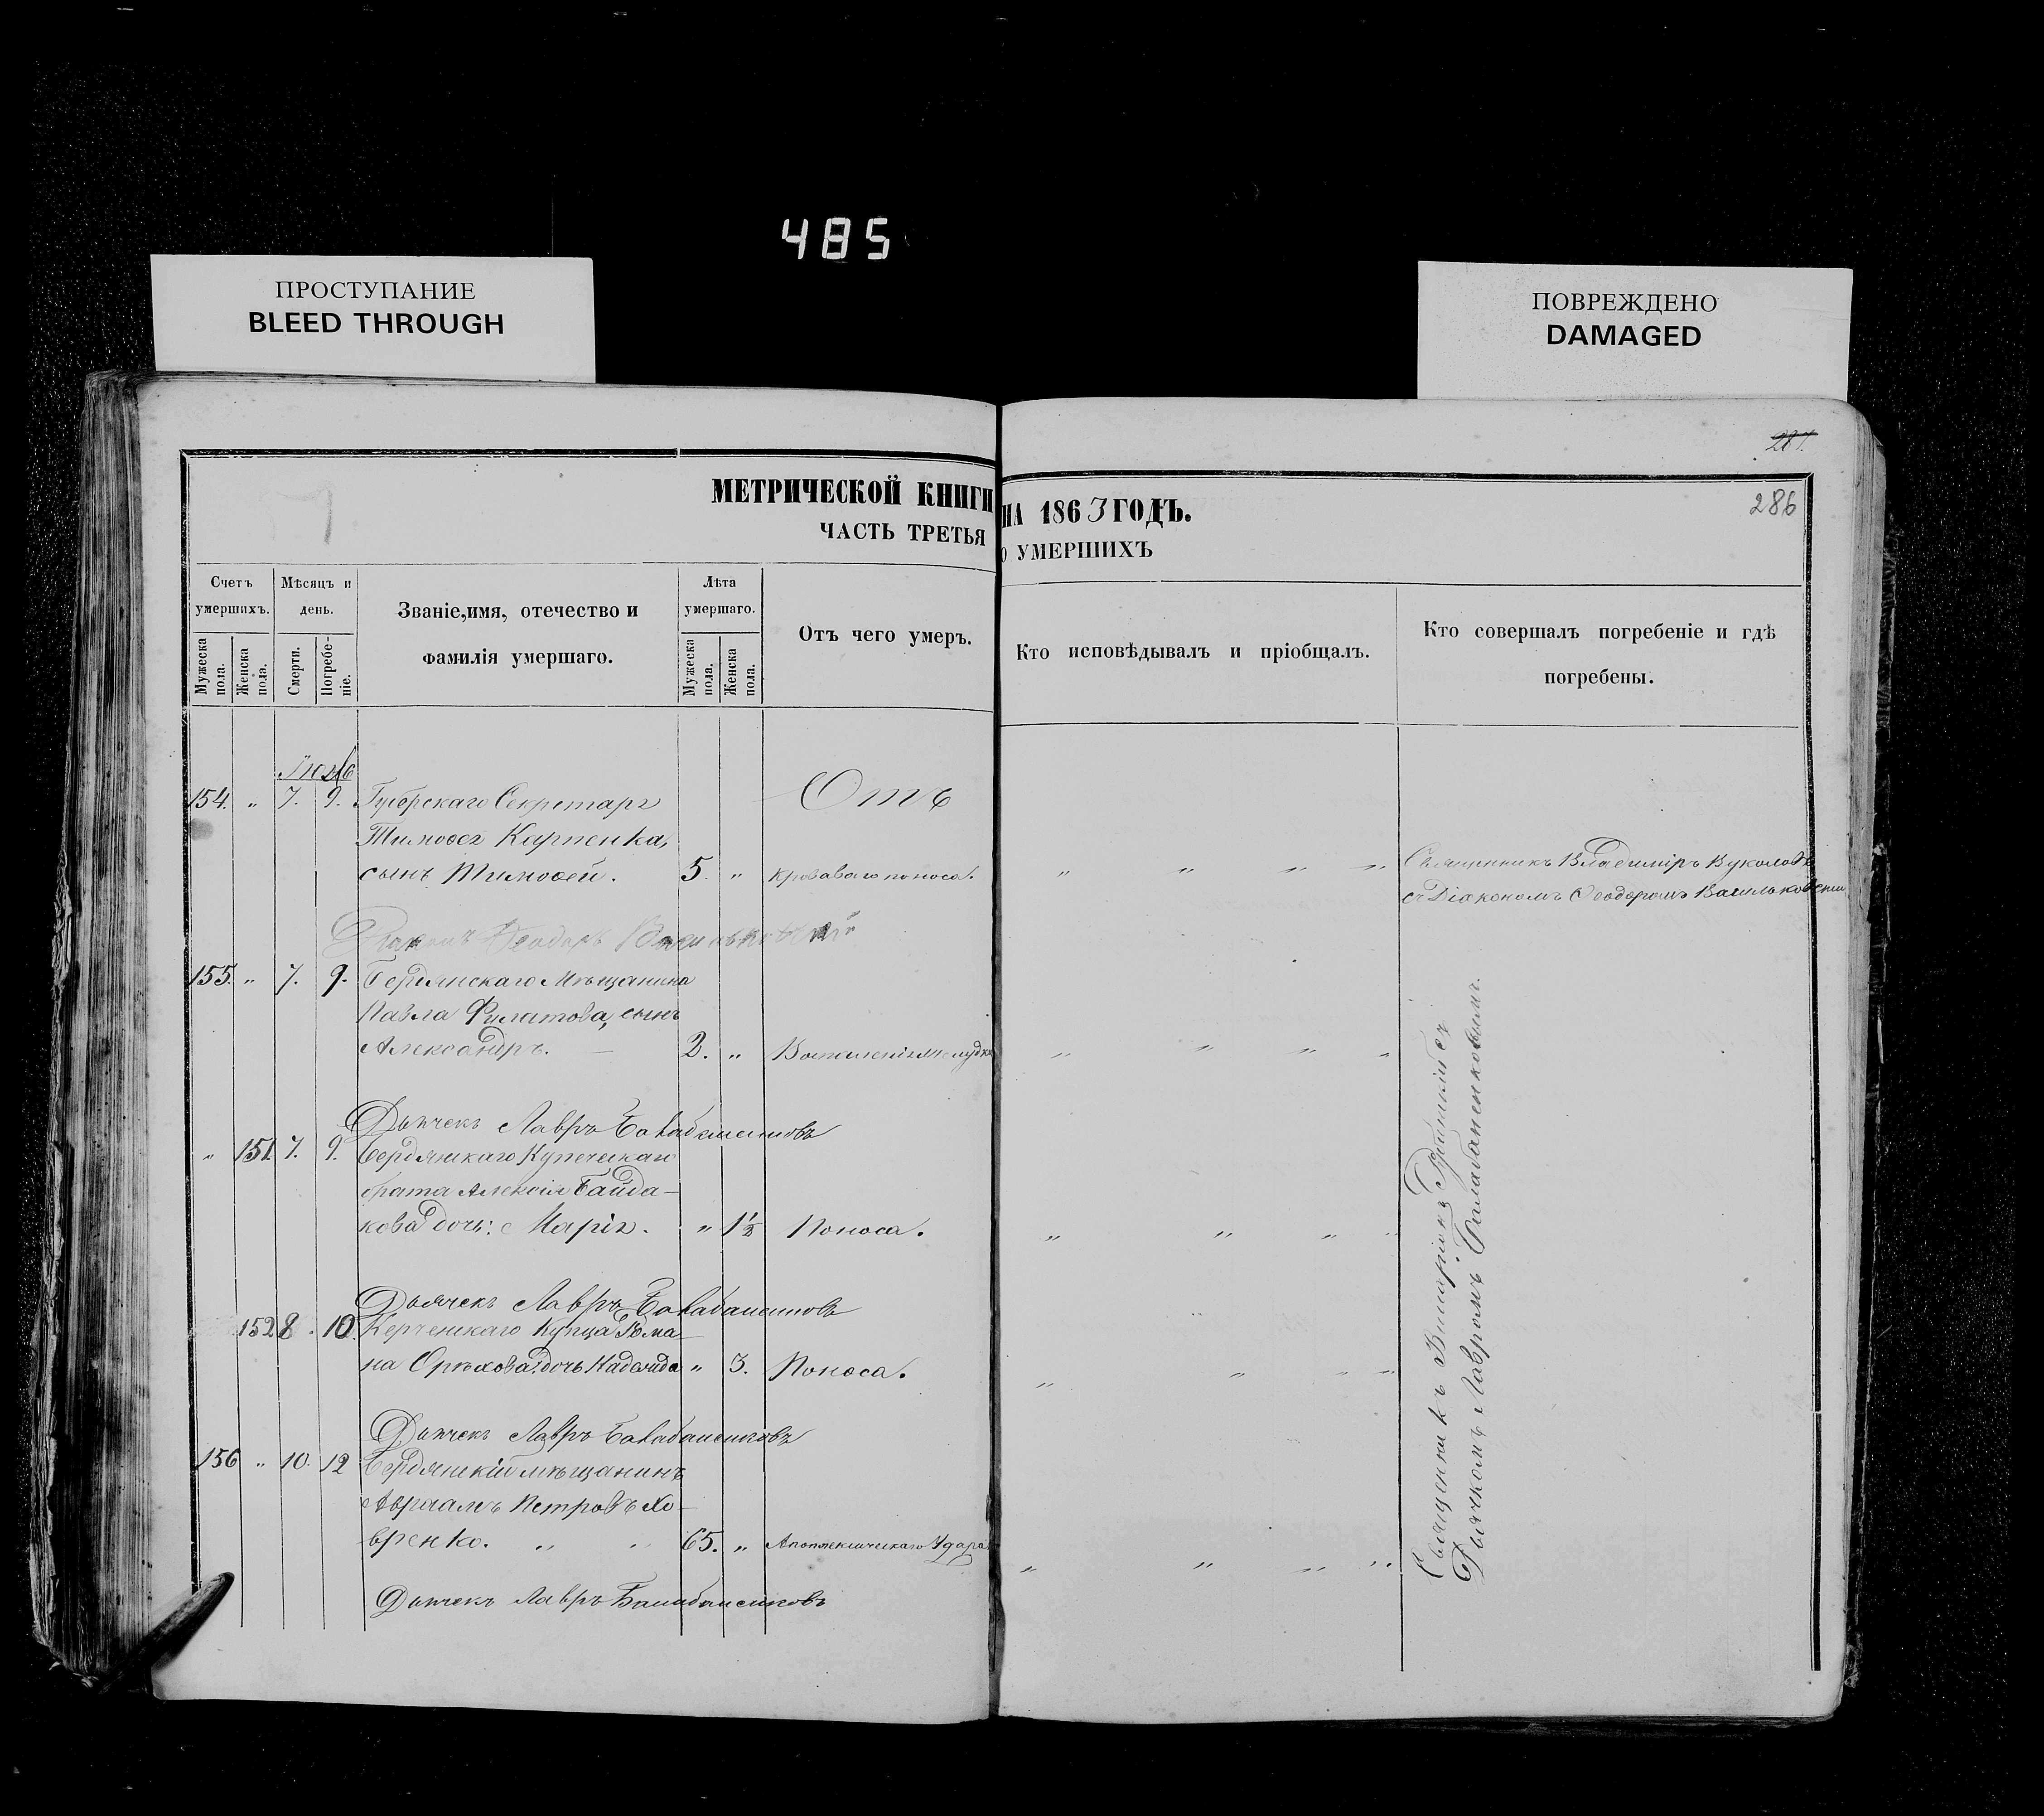 485
ПРОСТУПАНИЕ
BLEED THROUGH
ПОВРЕЖДЕНО
DAMAGED
286
МЕТРИЧЕСКОЙ КНИГИ НА 1863 ГОДЪ.
ЧАСТЬ ТРЕТЬЯ О УМЕРШИХЪ
Счетъ умершихъ.
Мужеска пола.
Женска пола.
Мѣсяцъ и день.
Смерти.
Погребеніе.
Званіе, имя, отечество и
фамилія умершаго.
Лѣта умершаго.
Мужеска пола.
Женска пола.
Отъ чего умеръ.
Кто исповѣдывалъ и пріобщалъ.
Кто совершалъ погребеніе и гдѣ
погребены.
154. " 7. 9. Губерскаго Секретаря Отъ
Тимоѳея Карпенка,
сынъ Тимоѳей. 5. " кроваваго поноса. " " " "
Священникъ Владиміръ Вуколовъ
съ Діакономъ Ѳеодоромъ Васильковскимъ
Діаконъ Ѳеодоръ Васильковскій
155. " 7. 9. Бердянскаго Мѣщанина
Павла Филатова, сынъ
Александръ. 2. " Воспаленія желудка " " " "
Дьячекъ Лавръ Балабаненковъ
" 151. 7. 9. Бердянскаго Купеческаго
брата Алексія Байда-
кова дочь: Марія. " 1½ Поноса. " " " "
Дьячекъ Лавръ Балабаненковъ
152 8. 10. Керченскаго Купца Рома-
на Орѣхова дочь Надежда " 3. Поноса. " " " "
Дьячекъ Лавръ Балабаненковъ
156 " 10. 12 Бердянскій мѣщанинъ
Авраамъ Петровъ Хо-
вренко. " " 65. " Апоплексическаго Удара " " " "
Дьячекъ Лавръ Балабаненковъ
Священникъ
Дьячкомъ Лавромъ Балабаненковымъ.